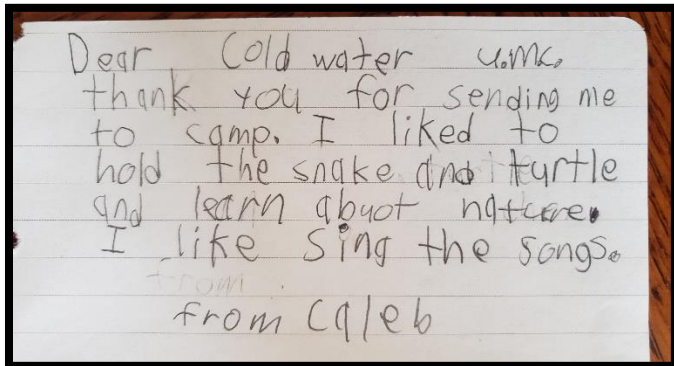 Dear Cold water u.mc.
thank you for sending me
to camp. I liked to
hold the snake and turtle
and learn abuot nature.
I like sing the songs.
from
from Caleb